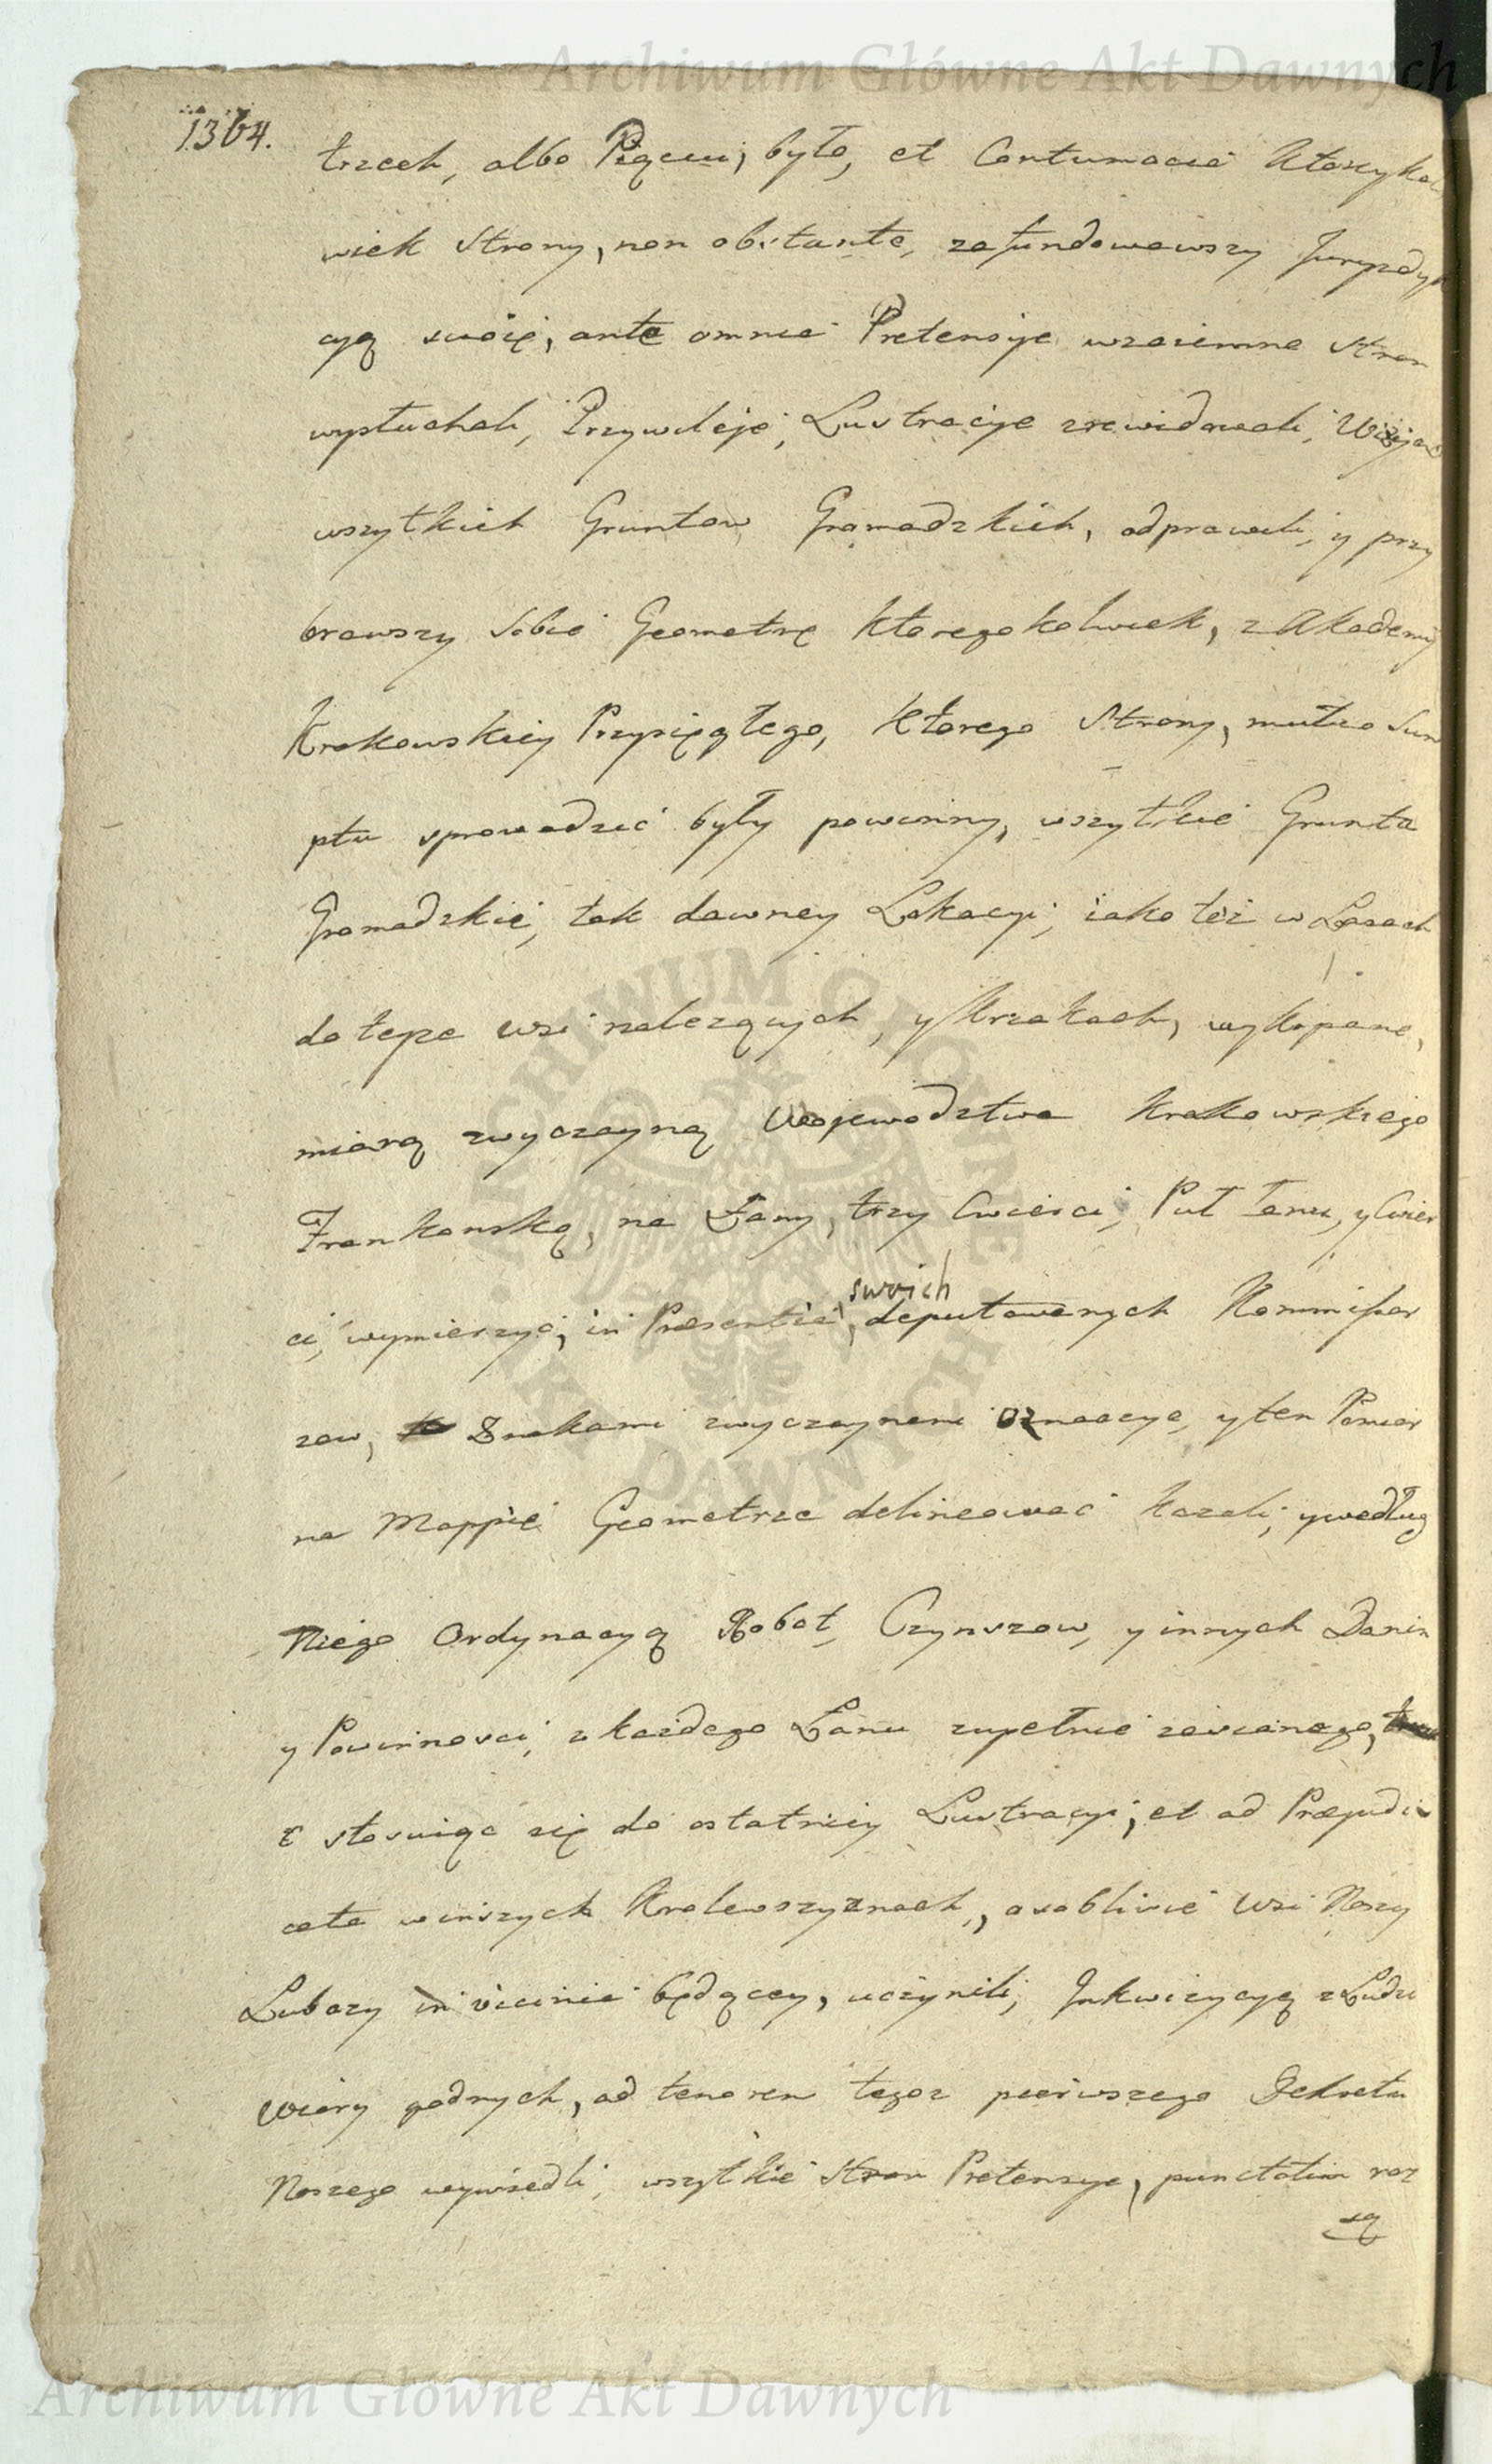 Archiwum Główne Akt Dawnych
1364.
trzech, albo Pięciu, było, et Contumacia Ktoreykol
wiek Strony, non obstante, zafundowawszy Juryzdyk
cyą swoię, ante omnia Pretensye wzaiemne Stron
wysłuchali, Przywileje, Lustracye zrewidowali, Wizyą
wszytkich Gruntow Gromadzkich, odprawili, y przy
brawszy Sobie Geometrę Ktoregokolwiek, z Akademij
Krakowskiey Przysięgłego, Ktorego Strony, mutuo Sum
ptu sprowadzić były powinny, wszytkie Grunta
Gromadzkie, tak dawney Lokacyi, iako też w Lasach
do teyze wsi należących, y Krzakach, wykopane,
miarą zwyczayną Wojewodztwa Krakowskiego
Frankońską, na Łany, trzy Cwierci, Puł Łanu, y Cwier
swoich
ci, wymierzyć, in Præsentia, deputowanych Kommissar
zow, Znakami zwyczaynemi oznaczyć, y ten Pomiar
na Mappie Geometrze delineować kazali, y według
Niego Ordynacyą Robot, Czynszow, y innych Danin
y Powinności, z każdego Łanu zupełnie zasianego,
stosuiąc się do ostatniey Lustracyi, et ad Præjudi
cata w inszych Krolewszyznach, osobliwie Wsi Naszy
Lubzy in vicinia będącey, uczynili, Inkwizycyą z Ludzi
Wiary godnych, ad tenorem tegoz pierwszego Dekretu
Naszego wywiedli, wszytkie Stron Pretensye, punctatim roz
są
ARCHIWUM GŁÓWNE AKT DAWNYCH
Archiwum Główne Akt Dawnych